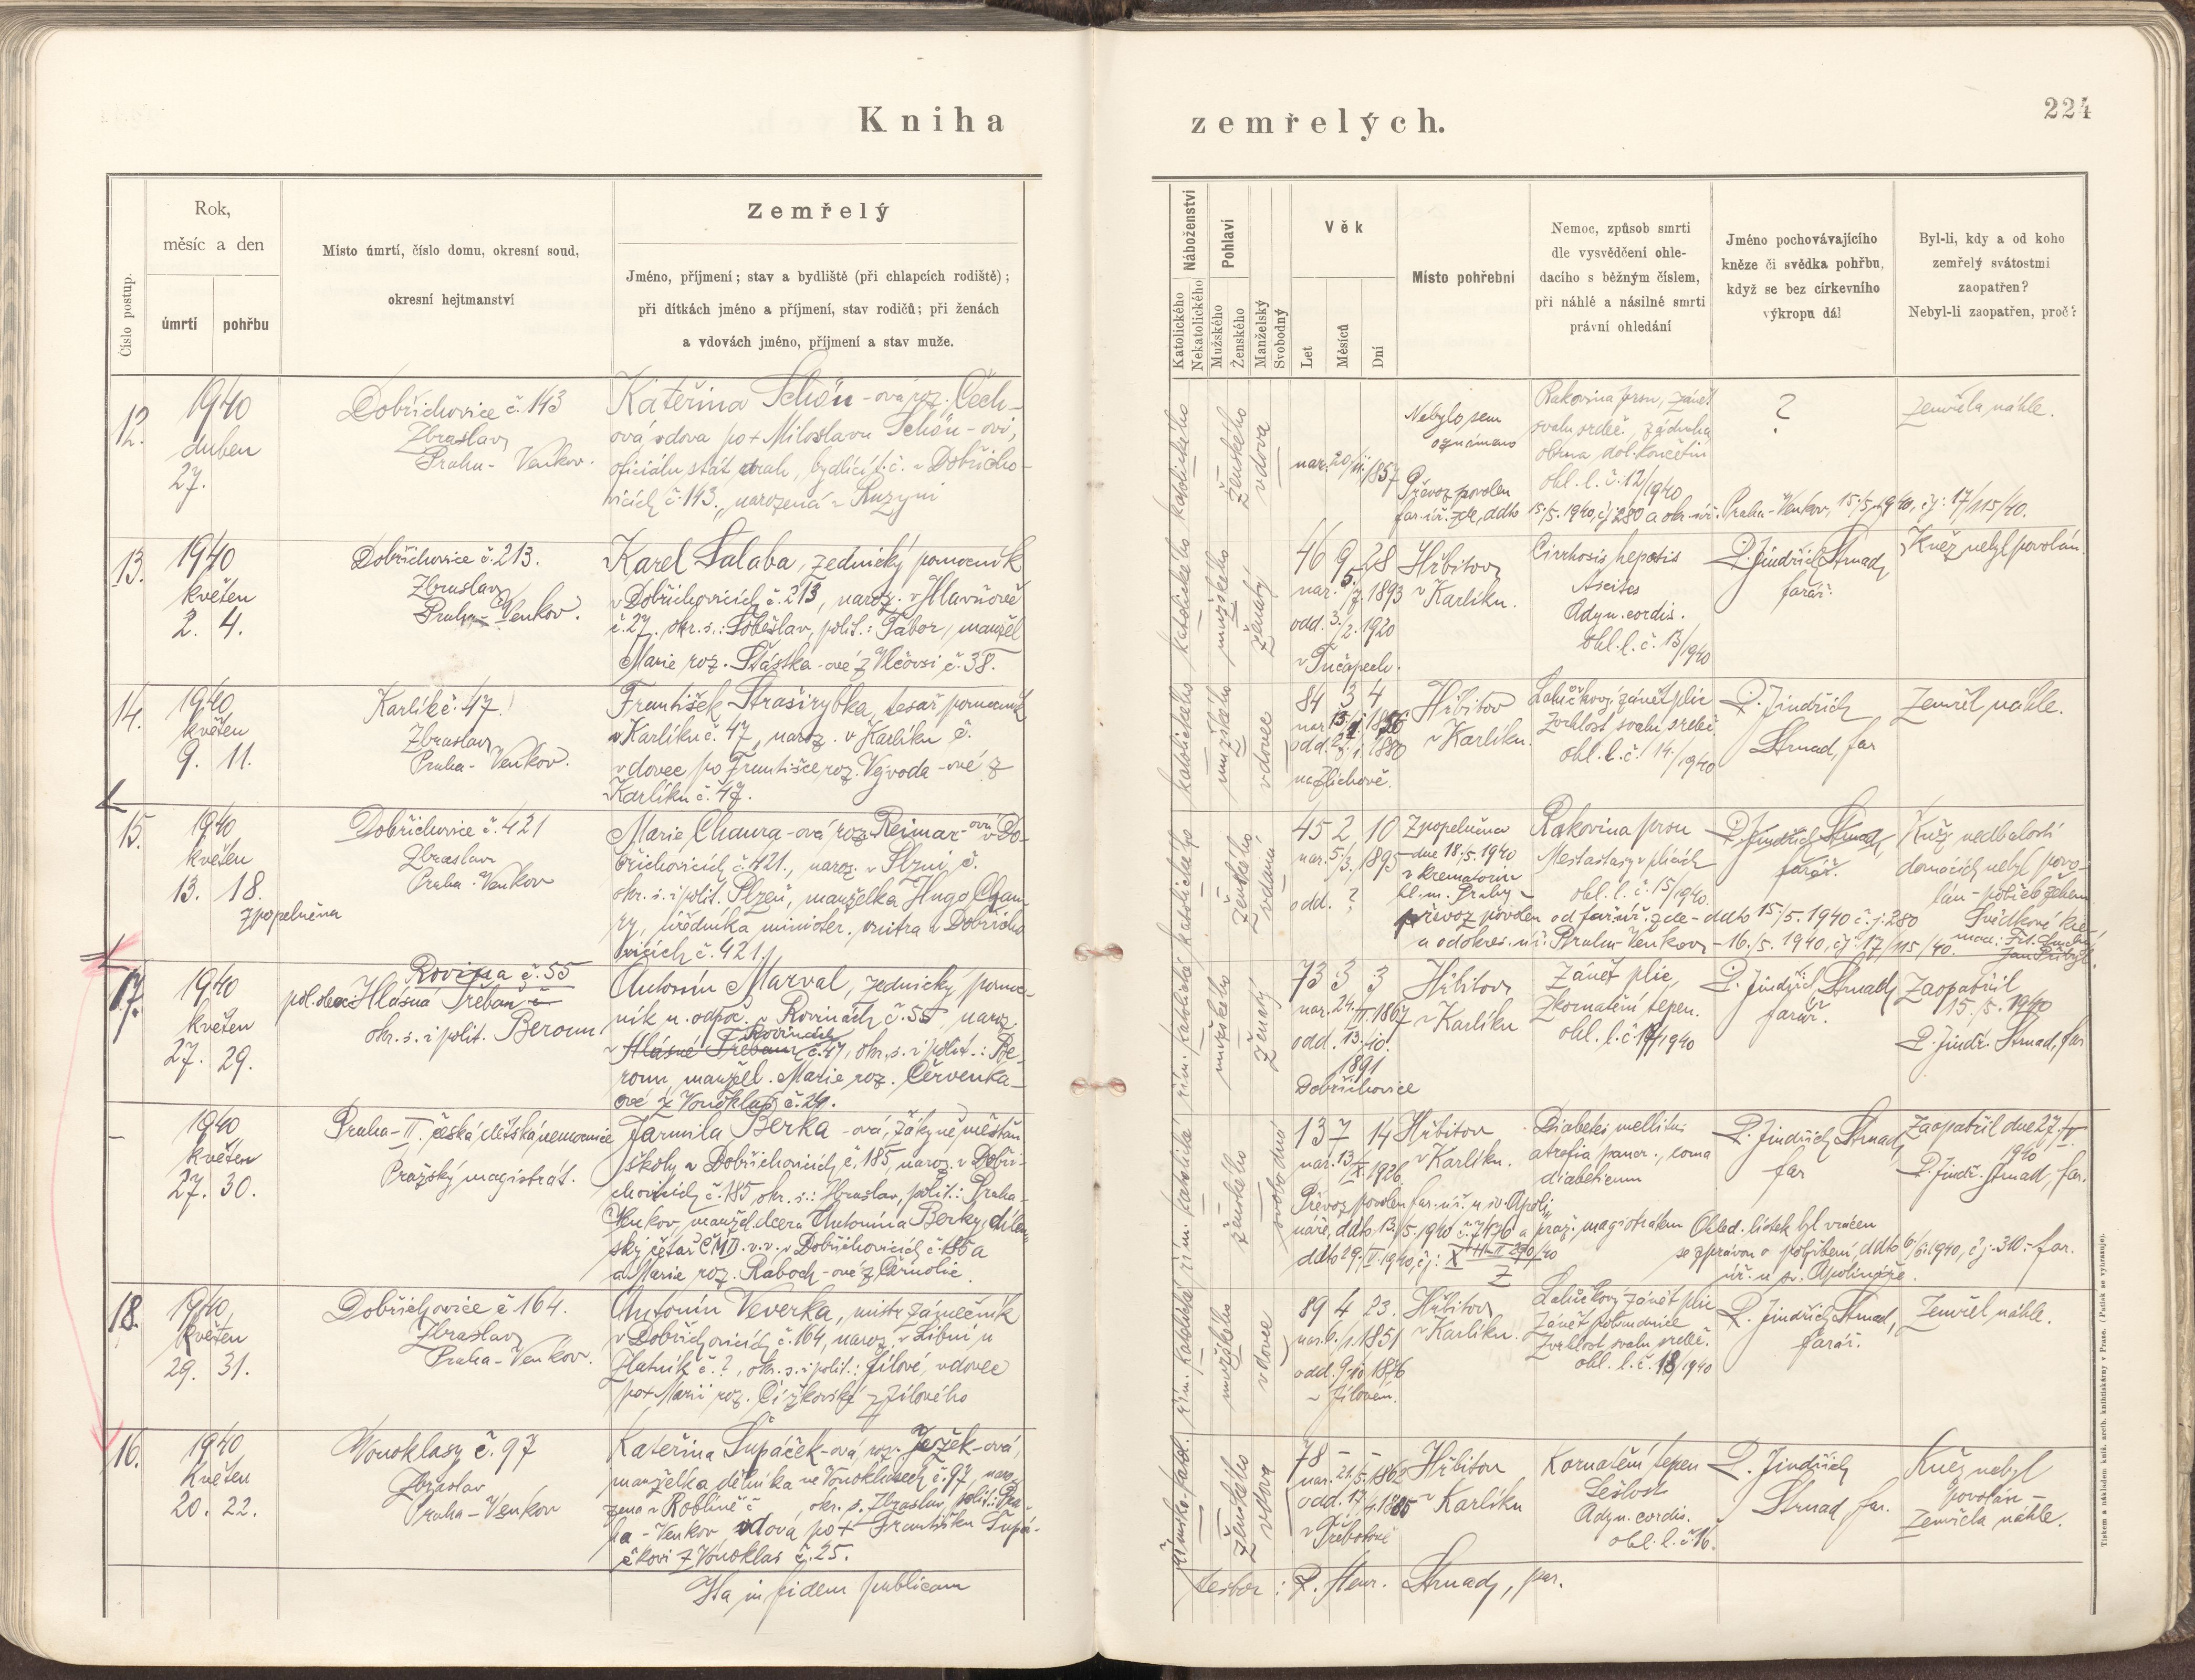 Kniha zemřelých.
224
Číslo postup.
Rok,
měsíc a den
úmrtí
pohřbu
Místo úmrtí, číslo domu, okresní soud,
okresní hejtmanství
Zemřelý
Jméno, příjmení; stav a bydliště (při chlapcích rodiště);
při dítkách jméno a příjmení, stav rodičů; při ženách
a vdovách jméno, příjmení a stav muže.
Náboženství
Katolického
Nekatolického
Pohlaví
Mužského
Ženského
Manželský
Svobodný
Věk
Let
Měsíců
Dní
Místo pohřební
Nemoc, způsob smrti
dle vysvědčení ohle-
dacího s běžným číslem,
při náhlé a násilné smrti
právní ohledání
Jméno pochovávajícího
kněze či svědka pohřbu,
když se bez církevního
výkropu dál
Byl-li, kdy a od koho
zemřelý svátostmi
zaopatřen?
Nebyl-li zaopatřen, proč?
12.
1940
duben
27.
Dobřichovice č. 143
Zbraslav
Praha - Venkov.
Kateřina Schön - ová roz. Čech-
ová, vdova po + Miloslavu Schön - ovi,
oficiálu stát. drah, bydlící t. č. v Dobřicho-
vicích č. 143., narozená v Ruzyni
ženského
vdova
nar. 20/11. 1857
Nebylo sem
oznámeno
Převoz povolen
far. úř. zde, ddto 15./5. 1940, čj 280 a okr. úř. Praha - Venkov, 15./5. 1940, čj: 17/115/40.
Rakovina prsu, zánět
svalu srdeč. záducha
obrna dol. končetin
ohl. l. č. 12/1940
?
Zemřela náhle.
13.
1940
květen
2. 4.
Dobřichovice č. 213.
Zbraslav
Praha - Venkov.
Karel Salaba, zednický pomocník
v Dobřichovicích č. 213, naroz. v Hlavňově
č. 27. okr. s.: Soběslav, polit.: Tábor, manžel
Marie roz. Šťástka - ové z Vlčovsi č. 38.
mužského
ženatý
46 9 28
nar. 5./7. 1893
odd. 3./2. 1920
v Tučapech.
Hřbitov
v Karlíku.
Cirrhosis hepatis
Ascites
Adyn. cordis.
ohl. l. č. 13/1940
P. Jindřich Strnad,
farář.
Kněz nebyl povolán.
14.
1940
květen
9. 11.
Karlík č. 47.
Zbraslav
Praha - Venkov.
František Straširybka, tesař. pomocník
v Karlíku č. 47, naroz. v Karlíku č.
vdovec po Františce roz. Vyvoda - ové z
Karlíku č. 47.
mužského
vdovec
84 3 4
nar. 1856
odd. 1880
na Zlíchově.
Hřbitov
v Karlíku.
Lalůčkový zánět plic
Zvrhlost svalu srdeč.
ohl. l. č. 14./1940
P. Jindřich
Strnad, far
Zemřel náhle.
15.
1940
květen
13. 18.
zpopelněna
Dobřichovice č. 421
Zbraslav
Praha - Venkov
Marie Chaura - ová roz. Reimar - ová v Do-
břichovicích č. 421., naroz. v Plzni, č.
okr. s. i polit. Plzeň, manželka Hugo Chau-
ry, úředníka minister. vnitra v Dobřicho-
vicích č. 421.
ženského
vdaná
45 2 10
nar. 5./3. 1895
odd. ?
Zpopelněna
dne 18./5. 1940
v krematoriu
hl. m. Prahy -
převoz povolen od far. úř. zde - ddto 15./5. 1940 č. j: 280
a od okres. úř. Praha - Venkov - 16./5. 1940, čj: 17/115/40.
Rakovina prsu
Mestastasy v plicích
ohl. l. č. 15/1940.
P. Jindřich Strnad,
farář.
Kněz nedbalostí
domácích nebyl povo-
lán - pohřeb žehem
17.
1940
květen
27. 29.
Rovina č. 55
pol. obec Hlásná Třebaň č
okr. s. i polit. Beroun.
Antonín Marval, zednický pomoc-
ník n. odpoč. v Rovinách č. 55, naroz.
Rovinách
v Hlásné Třebani č. 47, okr. s. i polit.: Be-
roun, manžel Marie roz. Červenka-
ové z Vonoklas č. 24.
mužského
ženatý
73 3 3
nar. 24./II. 1867
odd. 13./10.
1891
Dobřichovice
Hřbitov
v Karlíku
Zánět plic,
Zkornatění tepen.
ohl. l. č. 17/1940
P. Jindřich Strnad,
farář.
Zaopatřil
15./5. 1940
P. Jindř. Strnad, far
-
1940
květen
27. 30.
Praha - II. česká dětská nemocnice
Pražský magistrát.
Jarmila Berka - ová, žákyně měšťan.
školy v Dobřichovicích č. 185, naroz. v Dobři-
chovicích č. 185 okr. s.: Zbraslav, polit.: Praha-
Venkov, manžel. dcera Antonína Berky, dílen-
ský četař ČMD. v. v. v Dobřichovicích č. 185 a
a Marie roz. Raboch - ové z Černolic.
ženského
svobodná
13 7 14
nar. 13/X. 1926.
Hřbitov
v Karlíku.
Diabetes mellitus
atrofia pancr., coma
diabeticum
P. Jindřich Strnad,
far
Zaopatřil dne 27./V.
1940
P. Jindř. Strnad, far.
Převoz povolen far. úř. u sv. Apoli-
náře, ddto 13./5. 1940 a praž. magistrátem
Ohled. lístek byl vrácen
se zprávou o pohřbení, ddto 6./6. 1940, čj: 310. - far.
úř. u sv. Apolináře.
18.
1940
květen
29. 31.
Dobřichovice č 164.
Zbraslav
Praha - Venkov.
Antonín Veverka, mistr zámečník
v Dobřichovicích č. 164, naroz. v Libni u
Zlatník č. ?, okr. s. i polit.: Jílové, vdovec
po + Marii roz. Čížkovské z Jílového
mužského
vdovec
89 4 23.
nar. 6./1. 1851
odd. 9./10. 1876
v Jílovém.
Hřbitov
v Karlíku.
Lalůčkový zánět plic
Zánět pohrudnice
Zvrhlost svalu srdeč.
ohl. l. č. 18/1940
P. Jindřich Strnad,
farář.
Zemřel náhle.
16.
1940
květen
20. 22.
Vonoklasy č. 97
Zbraslav
Praha - Venkov
Kateřina Šupáček - ová, roz. Ježek - ová,
manželka dělníka ve Vonoklasech č. 97, naro-
zena v Roblíně č , okr. s. Zbraslav, polit.: Pra-
ha - Venkov, vdova po + Františku Šupá-
čkovi z Vonoklas č. 25.
ženského
vdova
78 - -
nar. 21./5. 1862
odd. 1885
v Třebotově
Hřbitov
v Karlíku
Kornatění tepen
Sešlost
Adyn. cordis.
ohl. l. č. 16.
P. Jindřich
Strnad, far.
Kněz nebyl
povolán -
Zemřela náhle.
Ita in fidem publicam
testor: P. Henr. Strnad, par.
Tiskem a nákladem kníž. arcib. knihtiskárny v Praze. (Patisk se vyhrazuje).